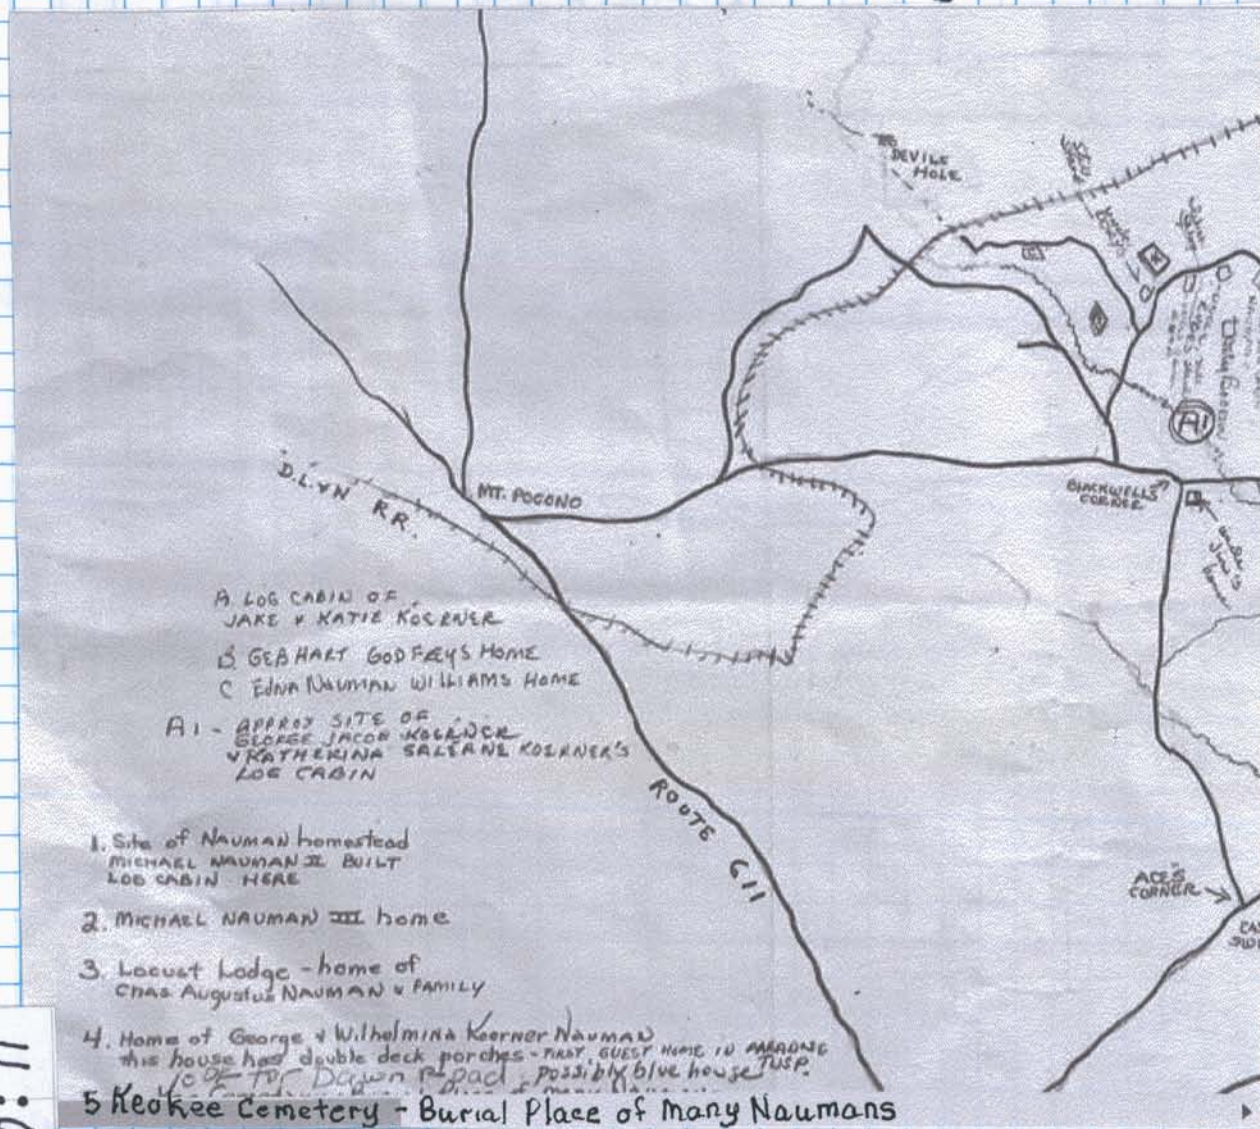 DEVILS
HOLE
D.L.&W R.R.
MT. POCONO
BLACKWELLS
CORNER
A1
A LOG CABIN OF
JAKE & KATIE KOERNER
B GEBHART GODFREYS HOME
C EDNA NAUMAN WILLIAMS HOME
A1 - APPROX SITE OF
GEORGE JACOB KOERNER
& KATHERINA SALEANE KOERNER'S
LOG CABIN
ROUTE 611
1. Site of NAUMAN homestead
MICHAEL NAUMAN II BUILT
LOG CABIN HERE
2. MICHAEL NAUMAN III home
3. Locust Lodge - home of
CHAS Augustus NAUMAN & FAMILY
ACE'S
CORNER
4. Home of George & Wilhelmina Koerner NAUMAN
this house has double deck porches - FIRST GUEST HOME IN PARADISE
TWSP.
possibly blue house
5 Keokee Cemetery - Burial Place of many Naumans